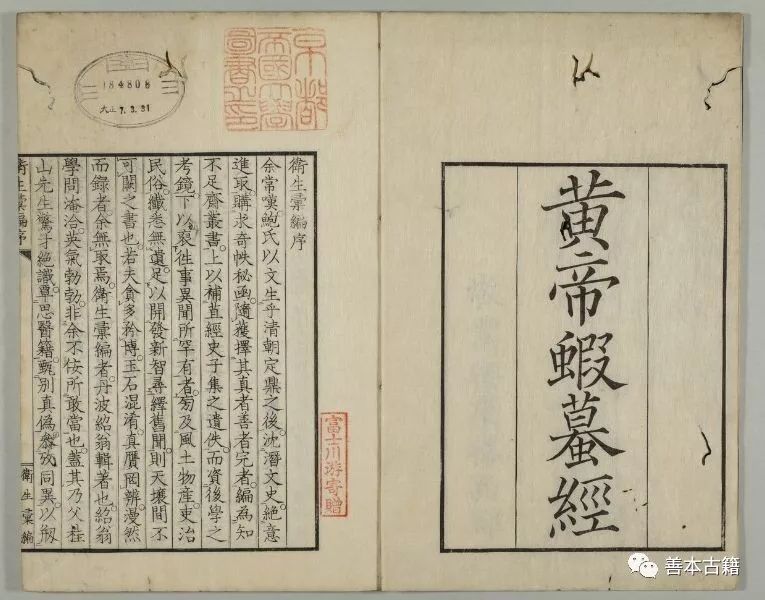 黃帝蝦蟇經
衛生彙編序
余常嘆鮑氏以文生乎清朝定鼎之後沈潛文史絕意
進取購求奇帙秘函隨獲擇其真者善者完者編為知
不足齋叢書上以補苴經史子集之遺佚而資後學之
考鏡下以裒往事異聞所罕有者旁及風土物產吏治
民俗纖悉無遺足以開發新智尋繹舊聞則天壤間不
可闕之書也若夫貪多矜博玉石混淆真贗罔辨漫然
而錄者余無取焉衛生彙編者丹波紹翁輯著也紹翁
學問淹洽英氣勃勃非余不佞所敢當也蓋其乃父桂
山先生驚才絕識覃思醫籍甄別真偽參攷同異以刱
衛生彙編序
衛生彙編
京都
帝國大學
圖書之印
184808
大正7.3.31
富士川游寄贈
善本古籍